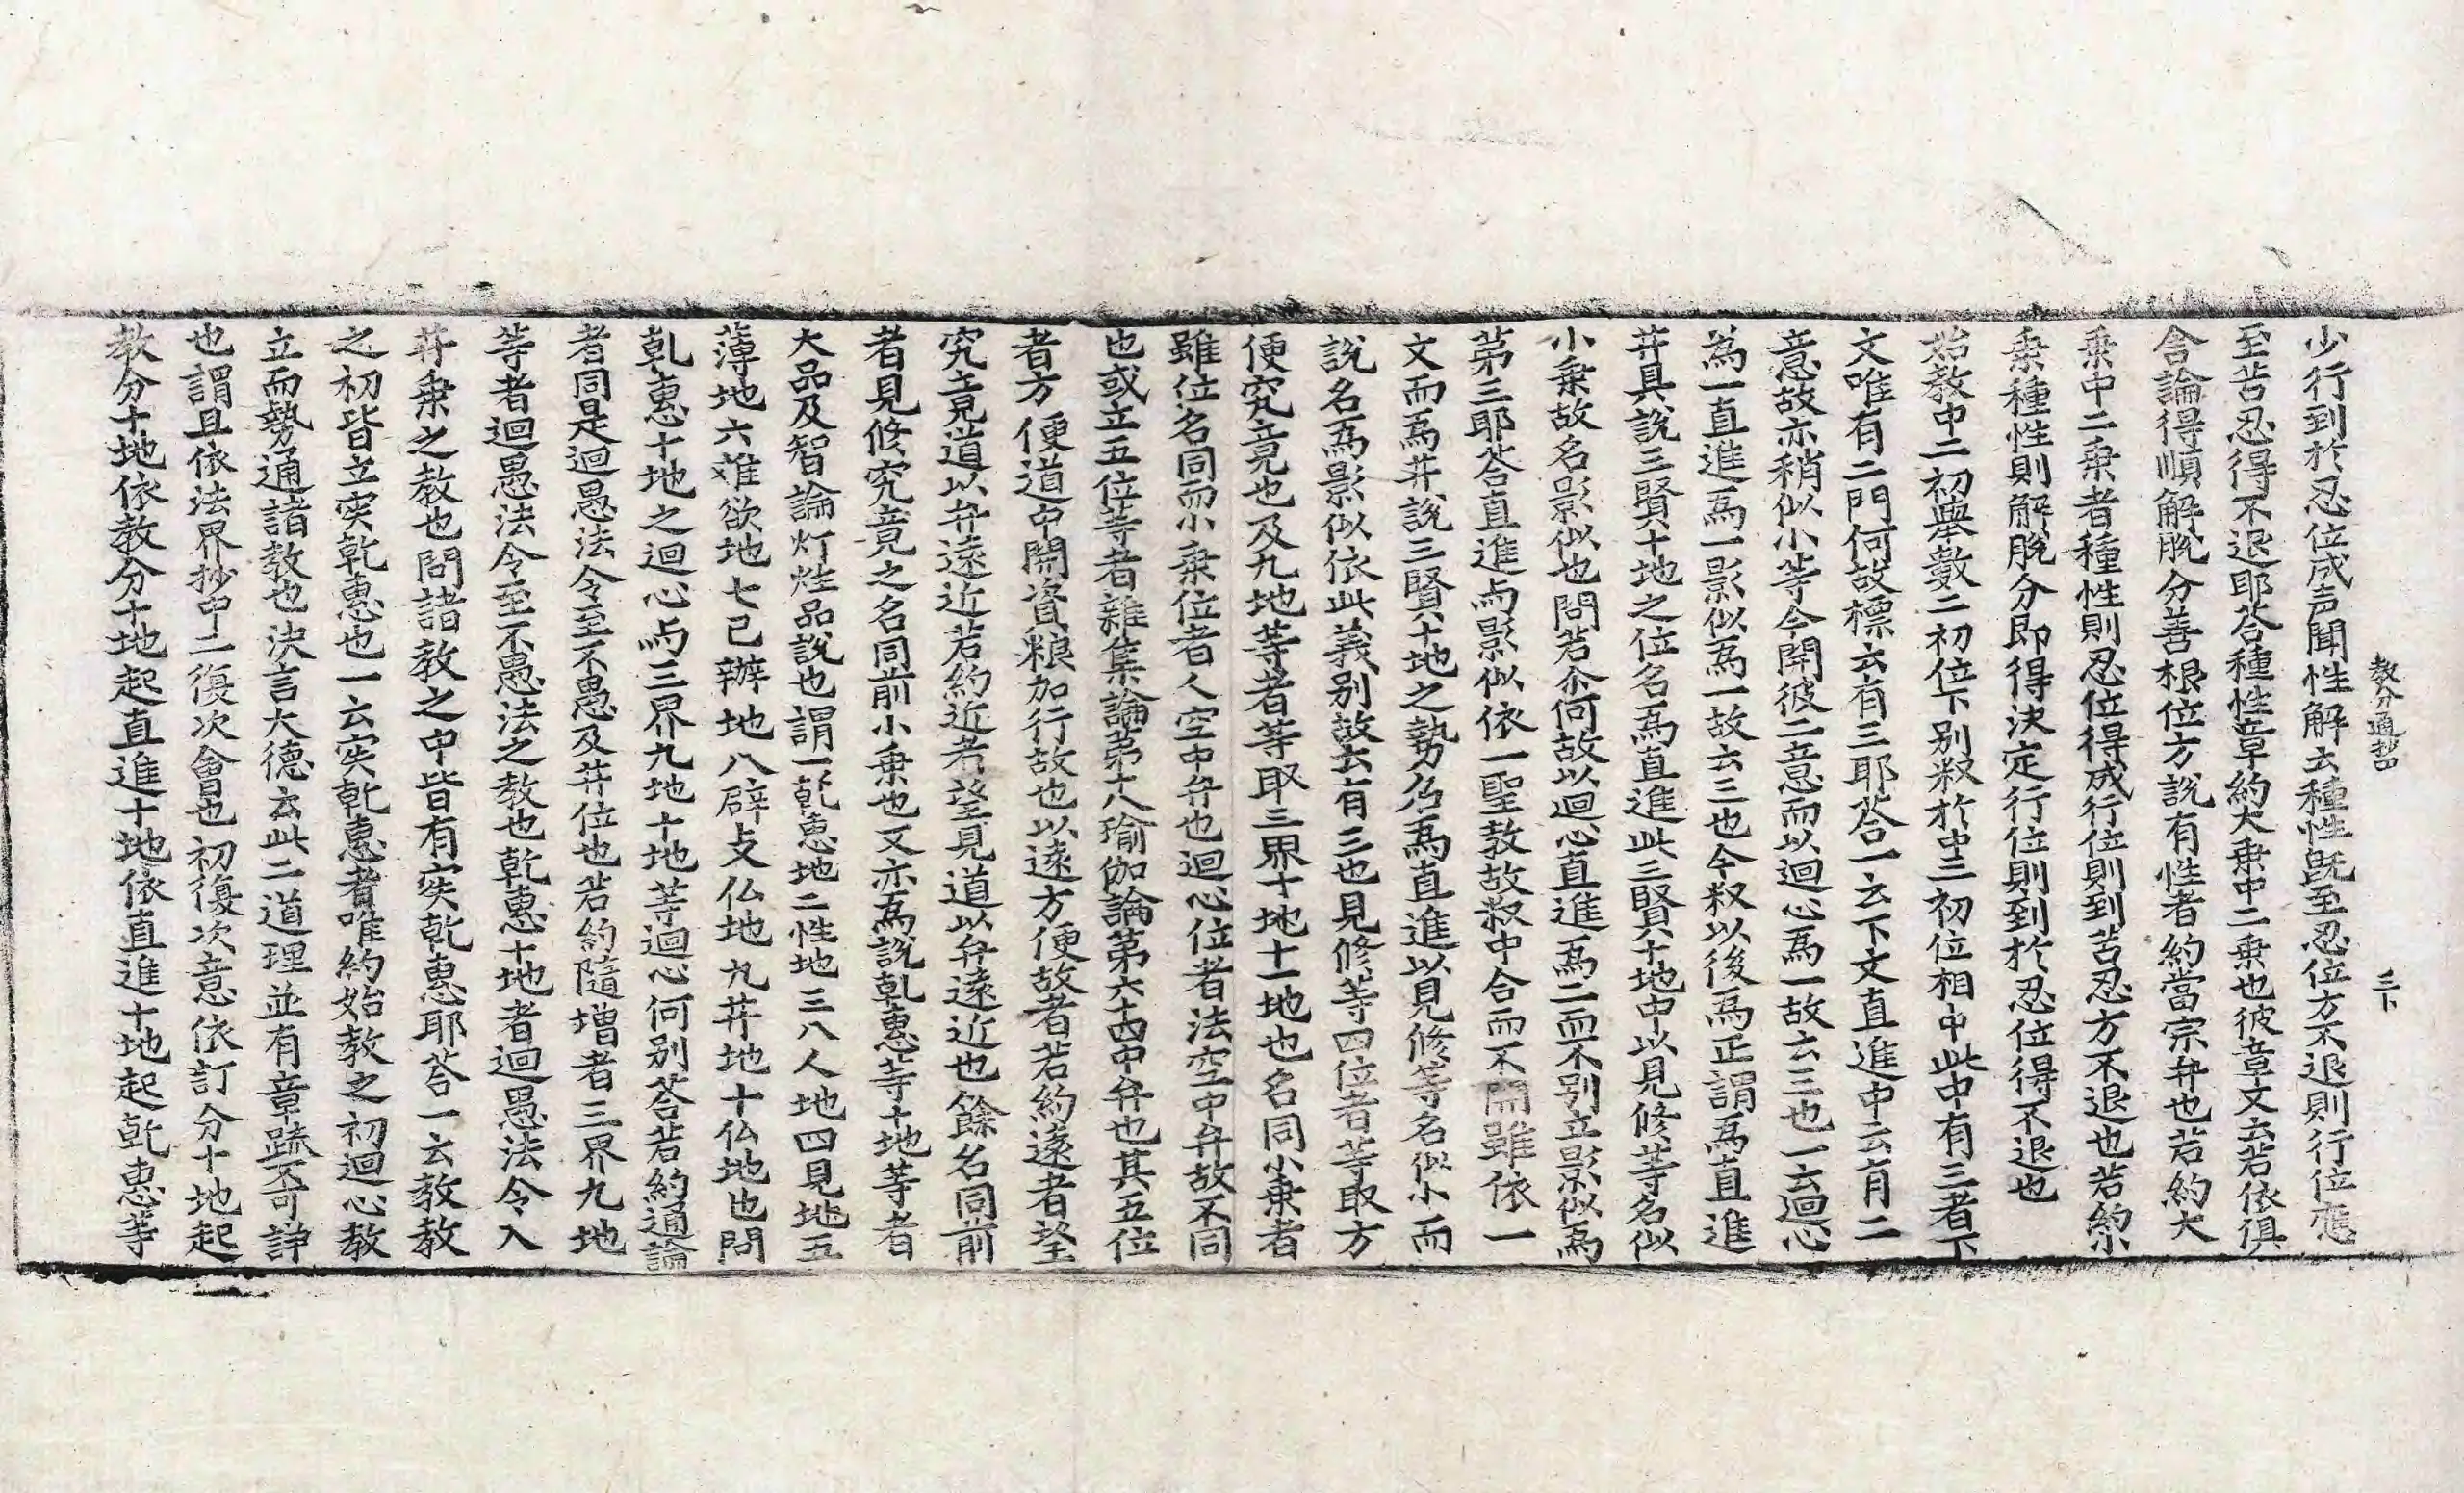 教分通抄四
三卜
少行到於忍位成声聞性解云種性旣至忍位方不退則行位應
至苦忍得不退耶荅種性章約大乗中二乗也彼章文云若依俱
舎論得順解脫分善根位方說有性者約當宗弁也若約大
乗中二乗者種性則忍位得成行位則到苦忍方不退也若約小
乗種性則解脫分即得決定行位則到於忍位得不退也
始教中二初舉數二初位下別釈於中三初位相中此中有三者下
文唯有二門何故標云有三耶荅一云下文直進中云有二
意故亦稍似小等今開彼二意而以迴心爲一故云三也一云迴心
爲一直進爲一影似爲一故云三也今釈以後爲正謂爲直進
菩具說三賢十地之位名爲直進此三賢十地中以見修等名似
小乗故名影似也問若尒何故以迴心直進爲二而不別立影似爲
第三耶荅直進与影似依一聖教故釈中合而不開雖依一
文而爲菩說三賢十地之勢名爲直進以見修等名似小而
說名爲影似依此義别故云有三也見修等四位者等取方
便究竟也及九地等者等取三界十地十一地也名同小乗者
雖位名同而小乗位者人空中弁也迴心位者法空中弁故不同
也或立五位等者雜集論第十八瑜伽論第六十四中弁也其五位
者方便道中開資粮加行故也以遠方便故者若約遠者望
究竟道以弁遠近若約近者望見道以弁遠近也餘名同前
者見修究竟之名同前小乗也又亦爲說乾惠等十地等者
大品及智論灯炷品說也謂一乾惠地二性地三八人地四見地五
薄地六離欲地七已辦地八辟支仏地九菩地十仏地也問
乾惠十地之迴心与三界九地十地等迴心何别荅若約通論
者同是迴愚法令至不愚及菩位也若約隨增者三界九地
等者迴愚法令至不愚法之教也乾惠十地者迴愚法令入
菩乗之教也問諸教之中皆有寂乾惠耶荅一云教教
之初皆立寂乾惠也一云寂乾惠者唯約始教之初迴心教
立而勢通諸教也決言大德云此二道理並有章䟽不可諍
也謂且依法界抄中二復次會也初復次意依訂分十地起
教分十地依教分十地起直進十地依直進十地起乾惠等